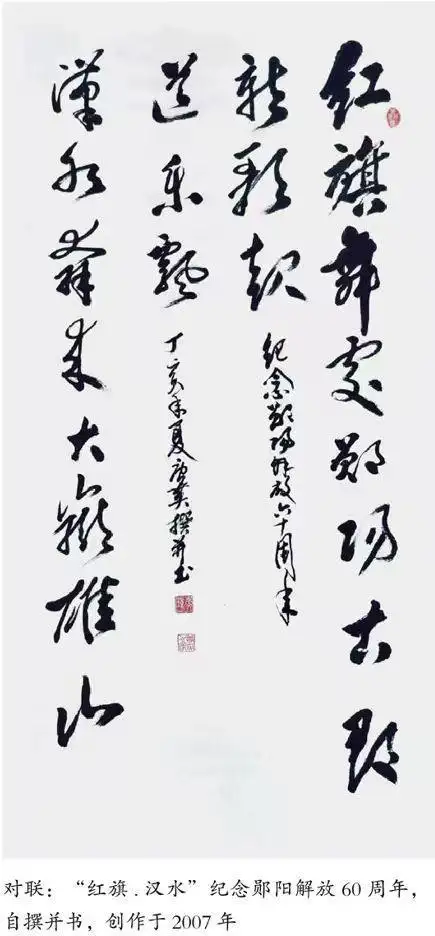 红旗舞处郧阳古郡
新歌起
纪念郧阳解放六十周年
道乐飘
丁亥年夏撰并书
漢水奔来大嶽雄山
对联：“红旗．汉水”纪念郧阳解放60周年，
自撰并书，创作于2007年